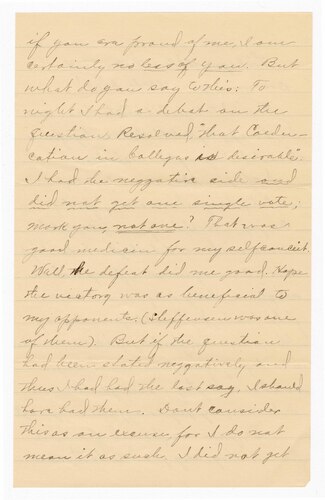 if you are proud of me, I am
certainly no less of you. But
what do you say to this: To
night I had a debat on the
question Resolved, "that Coedu-
cation in Colleges is desirable".
I had the neggative side and
did not get one single vote;
mark you, not one? That was a
good medicin for my selfconceit.
Well the defeat did me good. Hope
the victory was as beneficial to
my opponents. (Steffensen was one
of them). But if the question
had been stated neggatively and
thus I had had the last say, I should
have had them. Dont consider
this as an excuse for I do not
mean it as such. I did not get